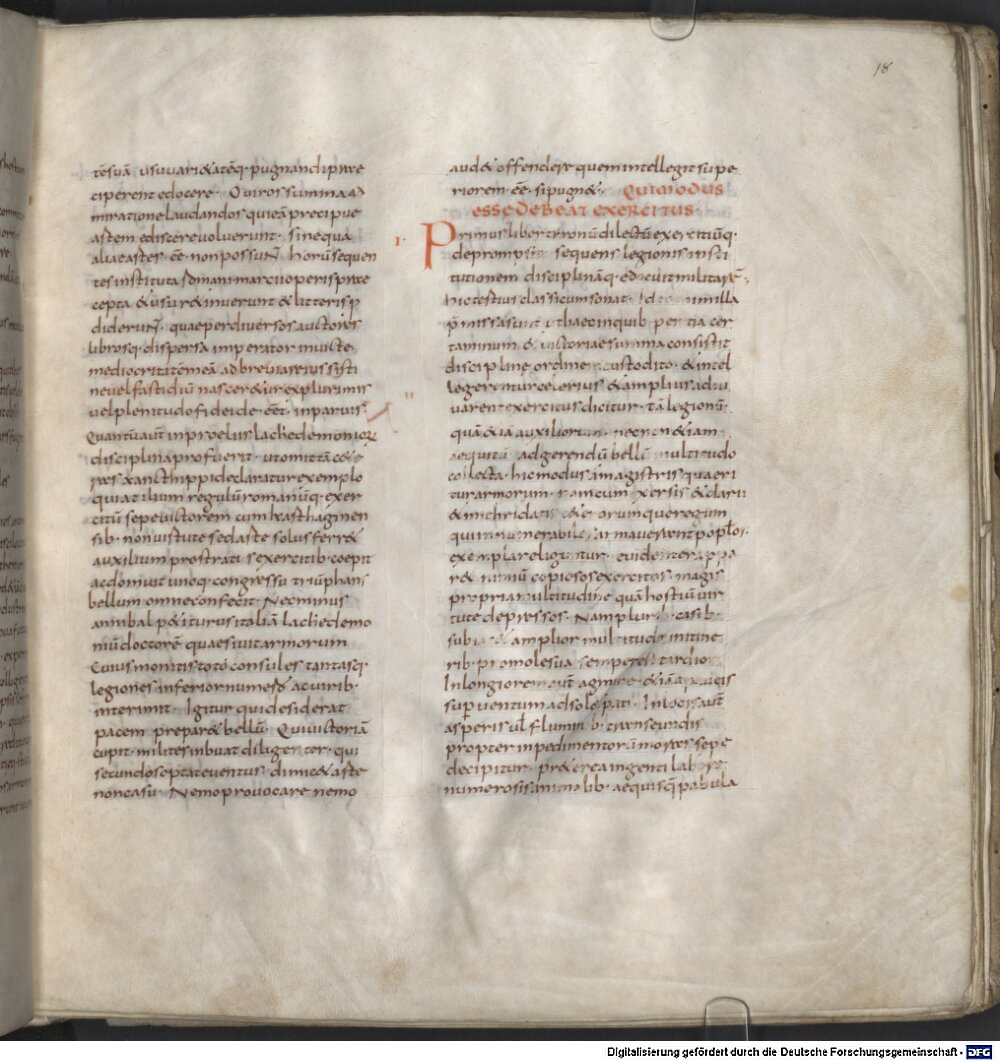 18
tēsuā usuvari&atēq· pugnandi prae
ciperent edocere· Quiros summa ad
miratione laudandos qui eā precipue
astem ediscere voluerunt· sine qua
aliae astes· ēē· non possunt· horū sequen
tes instituta romani marcii operis prae
cepta & usu r&inuerunt & litteris p
diderunt· quae per diversos auctores
librosq· dispersa imperator invicte
mediocritatē meā adbreviare iussisti
ne vel fastidiū nascer&ur ex plurimis
vel plenitudo fidei de·eēt· in parvis·
Quantū aut̄ in proeliis lachedemonior
disciplina profuerit· ut omittā c&e
ros xanthippi declaratur exemplo
qui atilium regulū romanūq· exer
citū sepe victorem cum kasthaginen
sib· non vistute sed aste solus ferr&
auxilium prostratis exercitib· coepit
ac domuit unoq· congressu triūphans
bellum omne confecit· Nec minus
annibal p&iturus italiā lachedemo
niū doctorē quaesivit armorum
Cuius monitis tot consules tantasq·
legiones inferior numero & ac virib·
interimit· Igitur qui desiderat
pacem prepar& bellū· Qui victoriā
cupit· milites inbuat diligenter· qui
secundos optat eventus· dimic& aste
non casu· Nemo provocare nemo
aud& offendere quem intellegit supe
riorem· ēē· si pugn&· Qui modus
esse debeat exercitus·
I· Primus liber tironū dilectū exercitiūq·
deprompsit· sequens legionis insti
tutionem disciplināq· edocuit militarē·
hic testius classicum sonat· Ideo illa
p̄missa sunt ut haec in quib· peritia cer
taminum & victoriae summa consistit
disciplinę ordine custodito & intel
legerentur celerius & amplius adiu
varent exercitus dicitur· tā legionū·
quā &iā auxiliorum· necnon &iam
aequitū ad gerendū bellū multitudo
collecta· hic modus a magistris quaeri
tur armorum· & darii
& mithridatis c&erorumque regum
qui innumerabiles armaverant popłos
exemplar eliguntur· evidenter appa
r& nimiū copiosos exercitos· magis
propria multitudine quā hostiū vir
tute depressos· Nam plurib· casib·
subiac& amplior multitudo in itine
rib· pro mole sua semper est tardior·
In longiore aut̄ agmine &iā a paucis
supventum adsol& pati· In locis aut̄
asperis uł fluminib· transeundis
propter inpedimentorā moras sepe
decipitur· pr&erea ingenti labore
numerosis animalib· aequisq· pabula